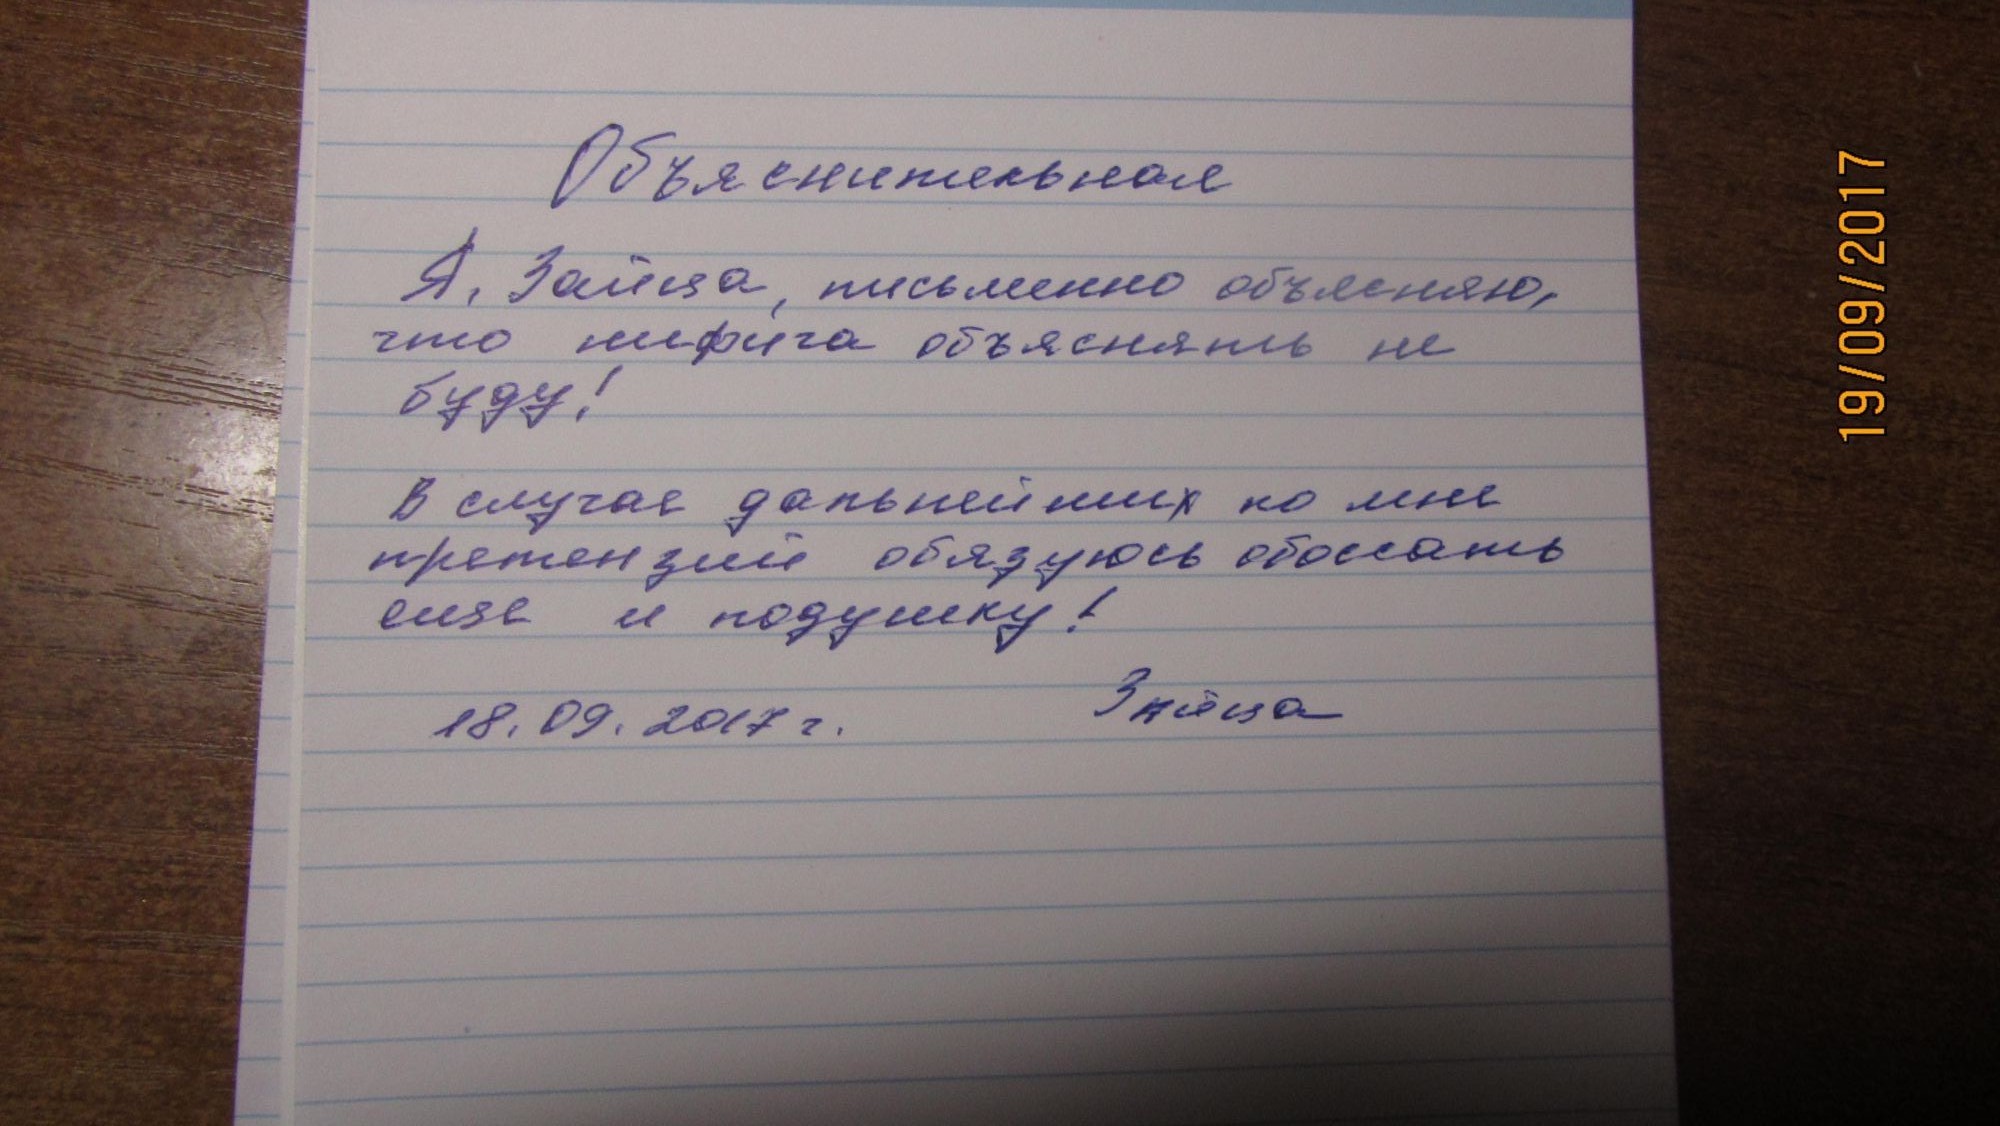 Объяснительная
Я, Зайца, письменно объясняю,
что нифига объяснять не
буду!
В случае дальнейших ко мне
претензий обязуюсь обоссать
ещё и подушку!
18.09.2017 г. Зайца
19/09/2017